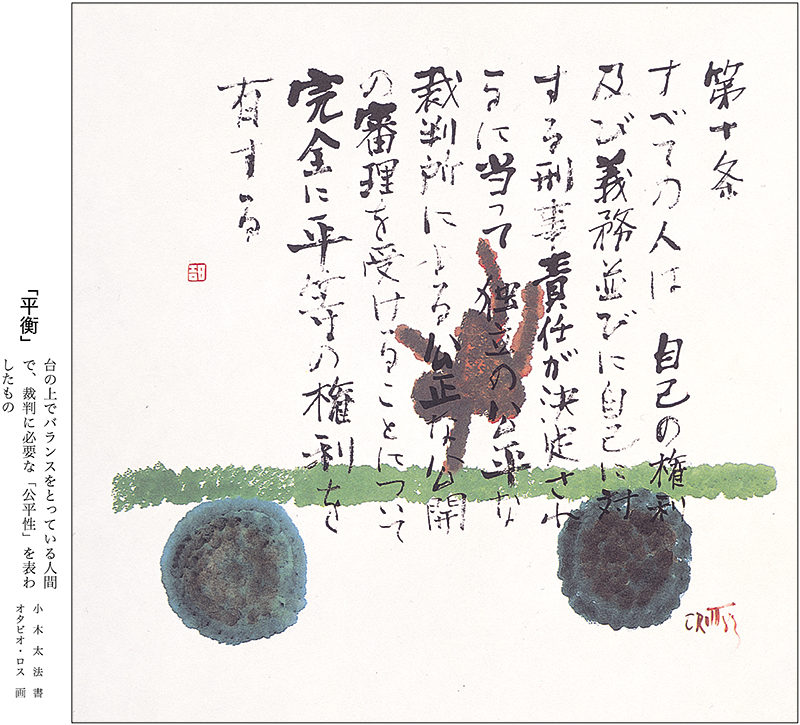 第十条
すべての人は 自己の権利
及び義務並びに自己に対
する刑事責任が決定され
るに当って 独立の公平な
裁判所による公正な公開
の審理を受けることについて
完全に平等の権利を
有する
「平衡」
台の上でバランスをとっている人間
で、裁判に必要な「公平性」を表わ
したもの
小木太法 書
オタビオ・ロス 画